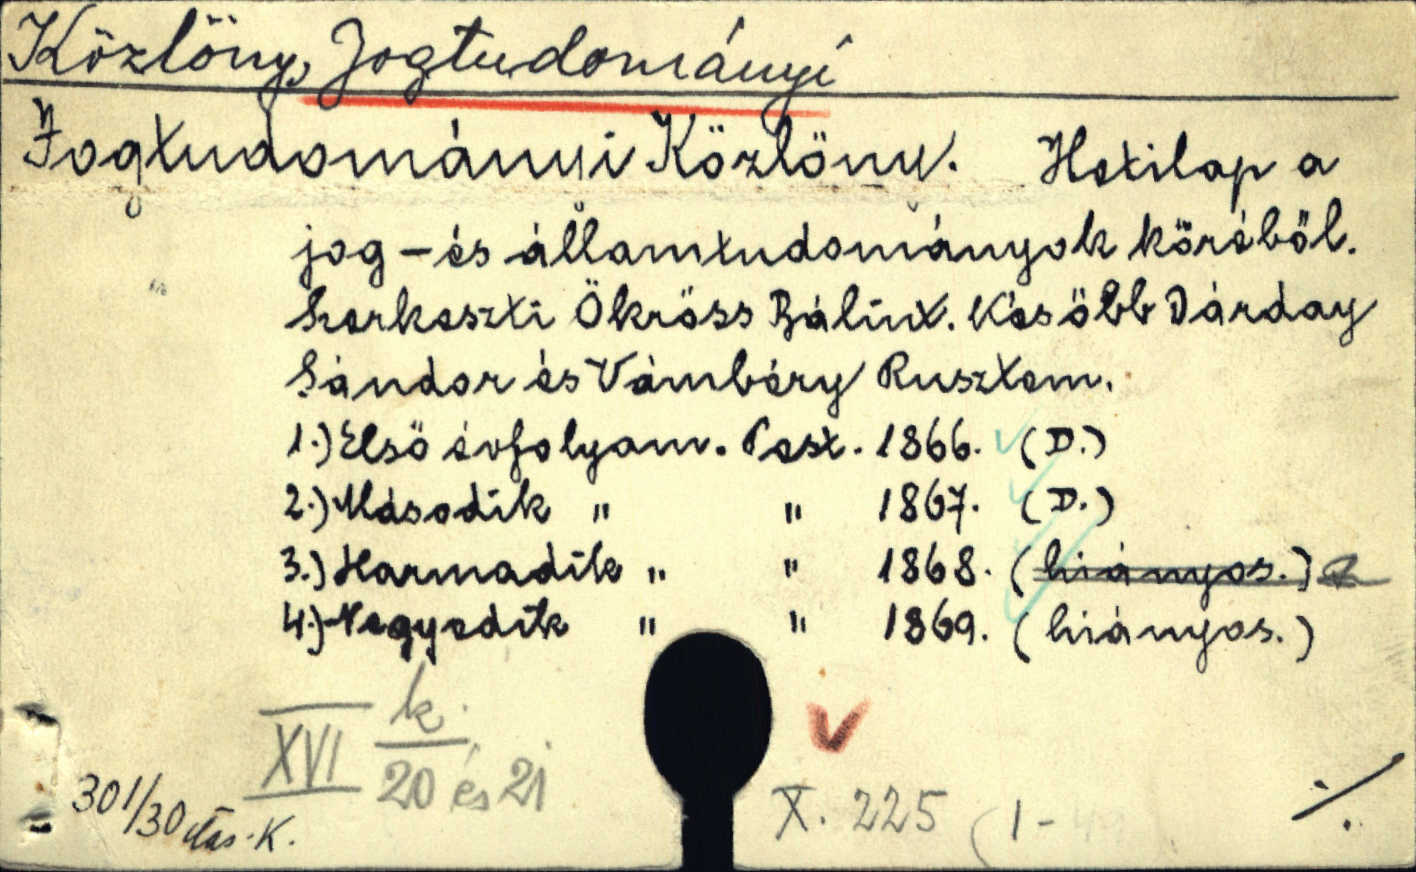 Közlöny, Jogtudományi
Jogtudományi Közlöny. Hetilap a
jog - és államtudományok köréből.
Szerkeszti Ökröss Bálint. Később Dárday
Sándor és Vámbéry Rusztem.
1.) Első évfolyam. Pest. 1866. (D.)
2.) Második " " 1867. (D.)
3.) Harmadik " " 1868. (hiányos.)
4.) Negyedik " " 1869. (hiányos.)
XVI k. 20 és 21
301/30 K.
X. 225 (1-49